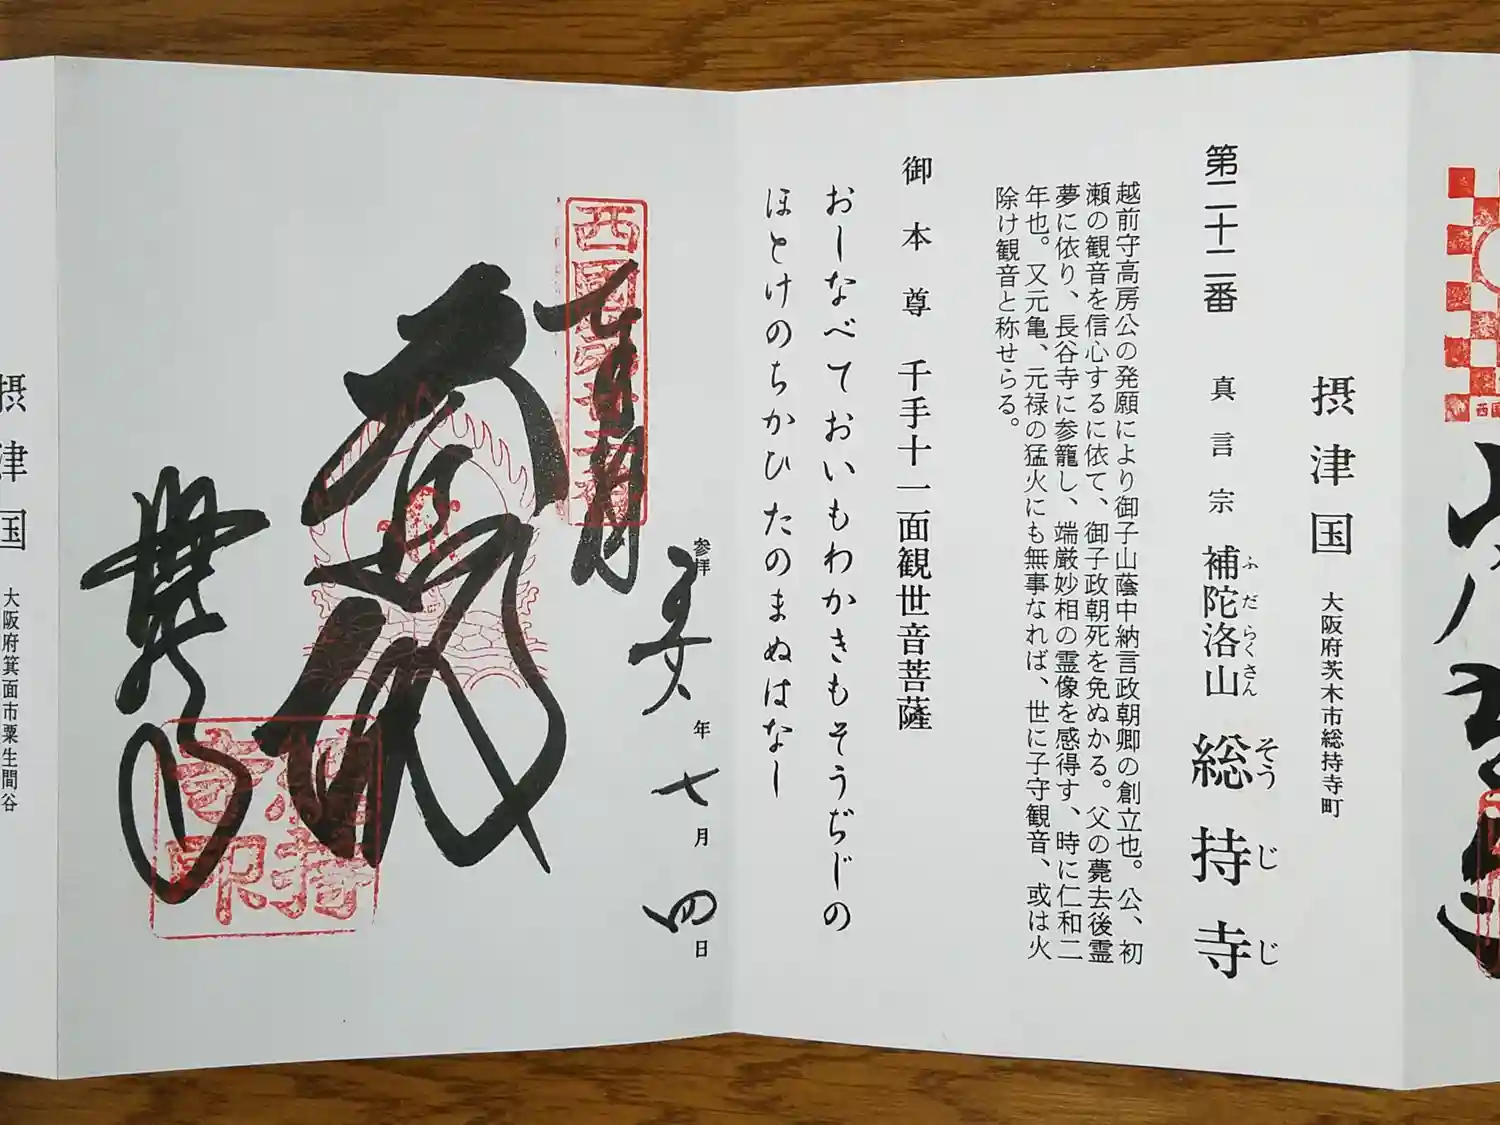 摂津国 大阪府茨木市総持寺町
第二十二番 真言宗 補陀洛山 総持寺
ふだらくさん そうじじ
越前守高房公の発願により御子山蔭中納言政朝卿の創立也。公、初
瀬の観音を信心するに依て、御子政朝死を免ぬかる。父の薨去後霊
夢に依り、長谷寺に参籠し、端厳妙相の霊像を感得す、時に仁和二
年也。又元亀、元禄の猛火にも無事なれば、世に子守観音、或は火
除け観音と称せらる。
御本尊 千手十一面観世音菩薩
おしなべておいもわかきもそうぢじの
ほとけのちかひたのまぬはなし
参拝 年 七月 四日
総持寺印
摂津国 大阪府箕面市粟生間谷